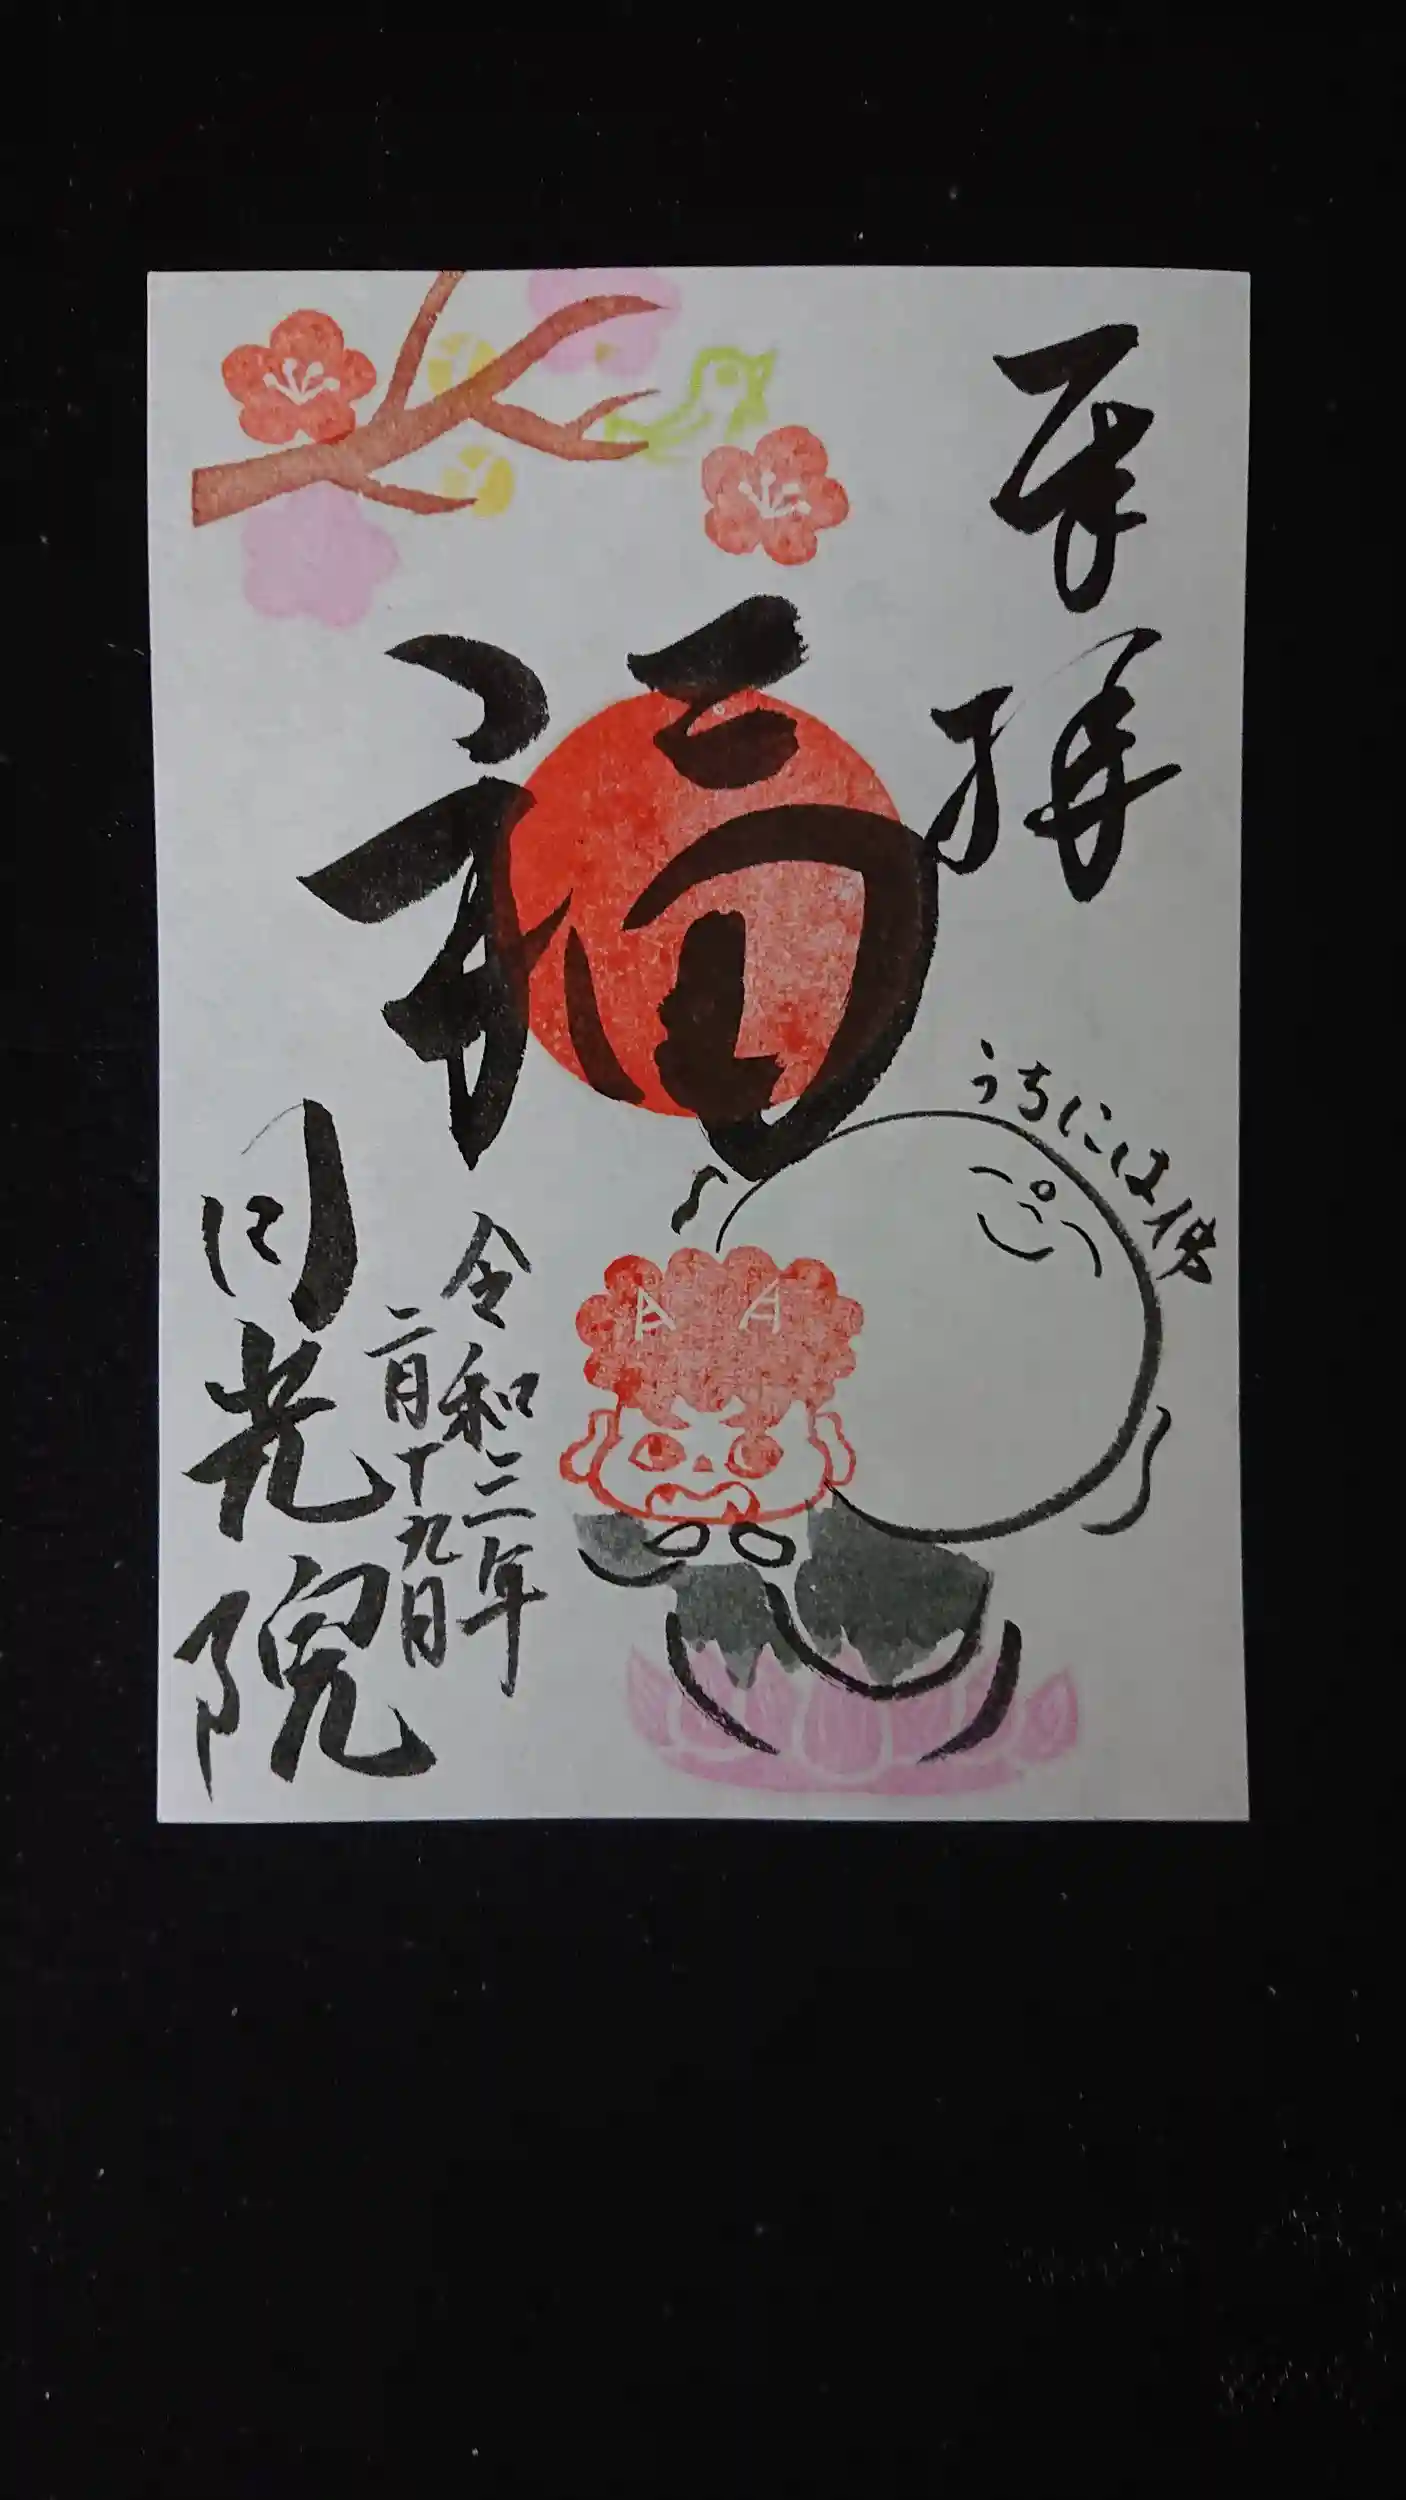 奉拝
福
うちには
令和二年
二月十九日
光院